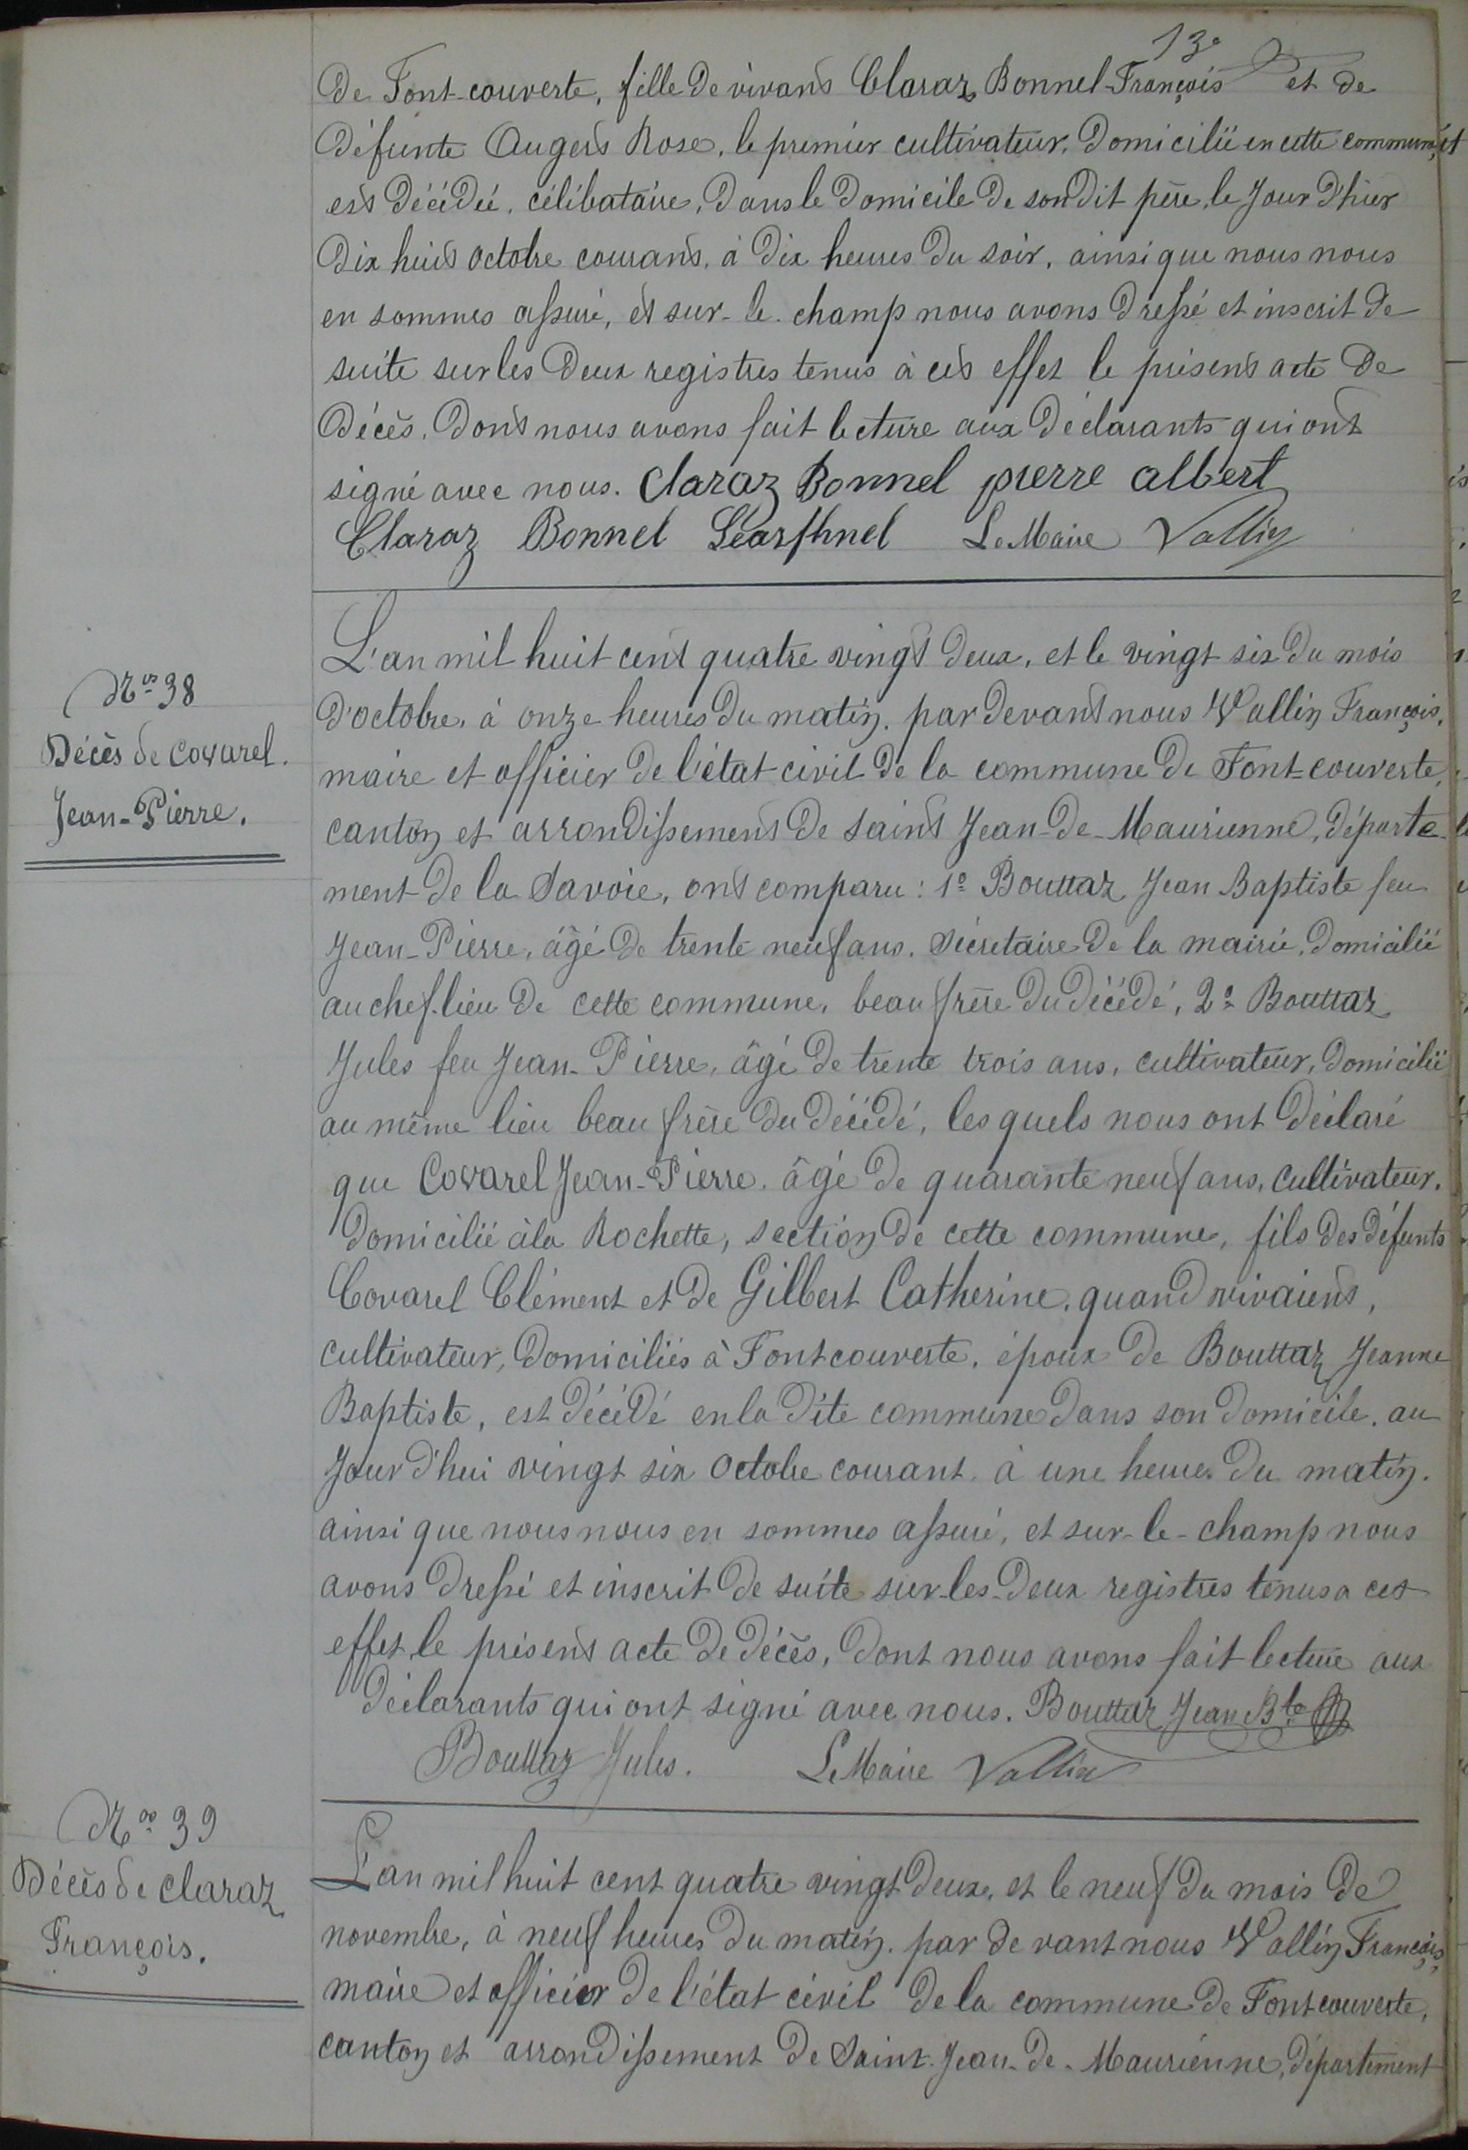 13e
de Font-couverte, fille de vivant Claraz Bonnel-François et de
défunte Augert Rose, le premier cultivateur, domicilié en cette commune, et
est décédée, célibataire, dans le domicile de son dit père, le jour d'hier
dix huit octobre courant, à dix heures du soir, ainsi que nous nous
en sommes assuré, et sur-le-champ nous avons dressé et inscrit de
suite sur les deux registres tenus à cet effet le présent acte de
décès, dont nous avons fait lecture aux déclarants qui ont
signé avec nous. Claraz Bonnel pierre albert
Claraz Bonnel Le Maire Vallin
L'an mil huit cent quatre vingt deux, et le vingt six du mois
Nos 38
Décès de Covarel
Jean-Pierre.
d'octobre, à onze heures du matin, par devant nous Vallin François,
maire et officier de l'état civil de la commune de Font-couverte,
canton et arrondissement de Saint Jean-de-Maurienne, départe-
ment de la Savoie, ont comparu : 1o Bouttaz Jean Baptiste feu
Jean-Pierre, âgé de trente neuf ans, sécretaire de la mairie, domicilié
au chef-lieu de cette commune, beau frère du décédé, 2o Bouttaz
Jules feu Jean-Pierre, âgé de trente trois ans, cultivateur, domicilié
au même lieu beau frère du décédé, les quels nous ont déclaré
que Covarel Jean-Pierre, âgé de quarante neuf ans, cultivateur,
domicilié à la Rochette, section de cette commune, fils des défunts
Covarel Clément et de Gilbert Catherine, quand vivaient,
cultivateur, domiciliés à Fontcouverte, époux de Bouttaz Jeanne
Baptiste, est décédé en la dite commune dans son domicile, au
jour d'hui vingt six octobre courant à une heure du matin.
ainsi que nous nous en sommes assuré, et sur-le-champ nous
avons dressé et inscrit de suite sur-les-deux registres tenus a cet
effet le présent acte de décès, dont nous avons fait lecture aux
déclarants qui ont signé avec nous. Bouttaz Jean Bte
Bouttaz Jules. Le Maire Vallin
Nos 39
Décès de Claraz
François.
L'an mil huit cent quatre vingt deux, et le neuf du mois de
novembre, à neuf heures du matin, par de vant nous Vallin François,
maire et officier de l'état civil de la commune de Fontcouverte,
canton et arrondissement de Saint-Jean-de-Maurienne, département